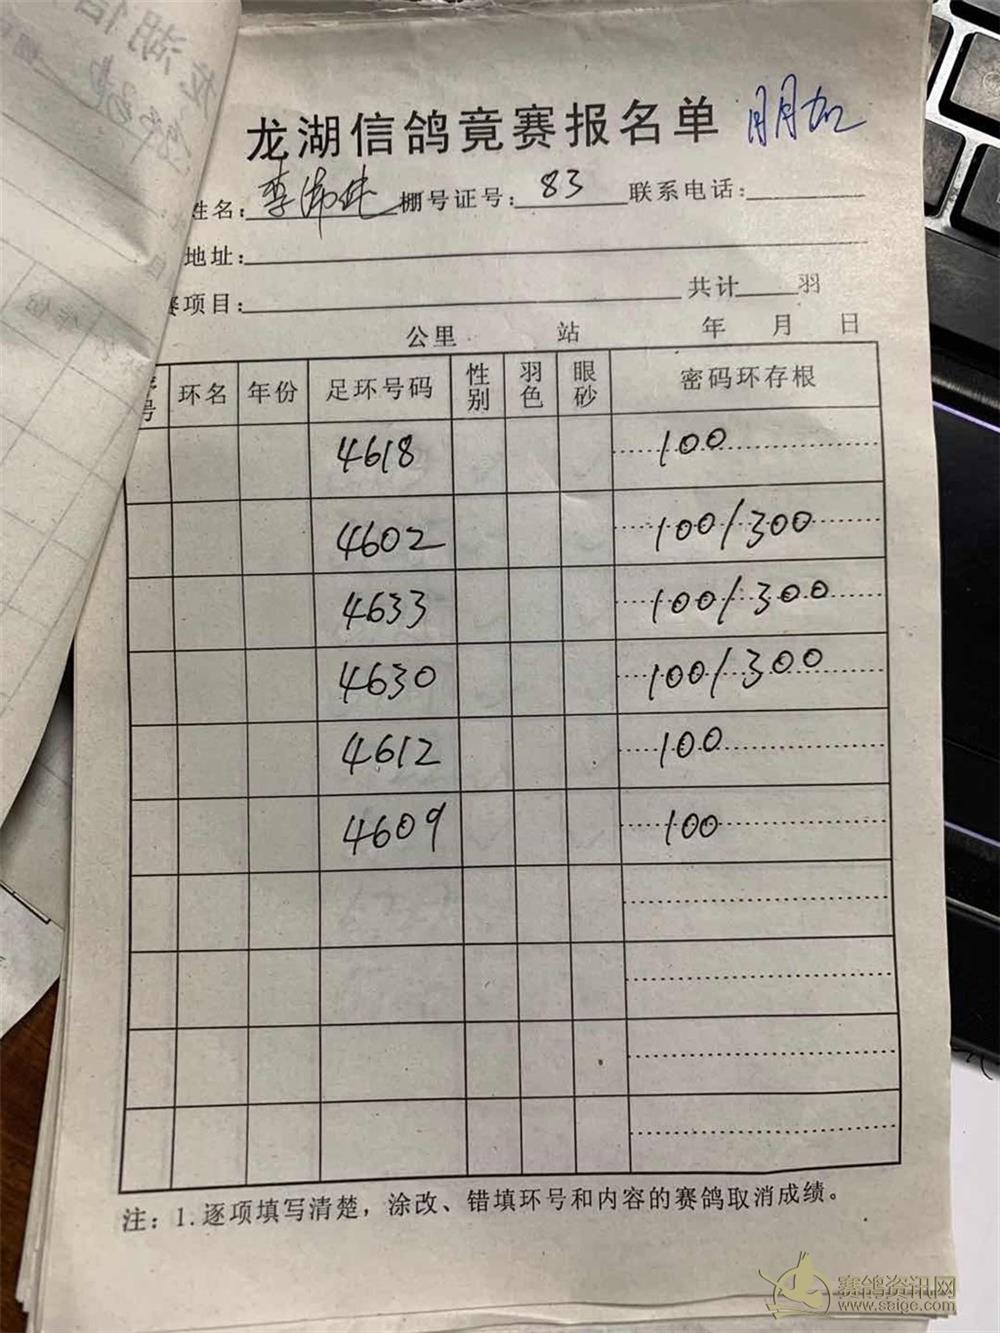 龙湖信鸽竞赛报名单
姓名: 李 棚号证号: 83 联系电话:
地址:
赛项目: 共计 羽
公里 站 年 月 日
号 环名 年份 足环号码 性别 羽色 眼砂 密码环存根
4618 100
4602 100/300
4633 100/300
4630 100/300
4612 100
4609 100
注: 1.逐项填写清楚，涂改、错填环号和内容的赛鸽取消成绩。
赛鸽资讯网
www.saige.com